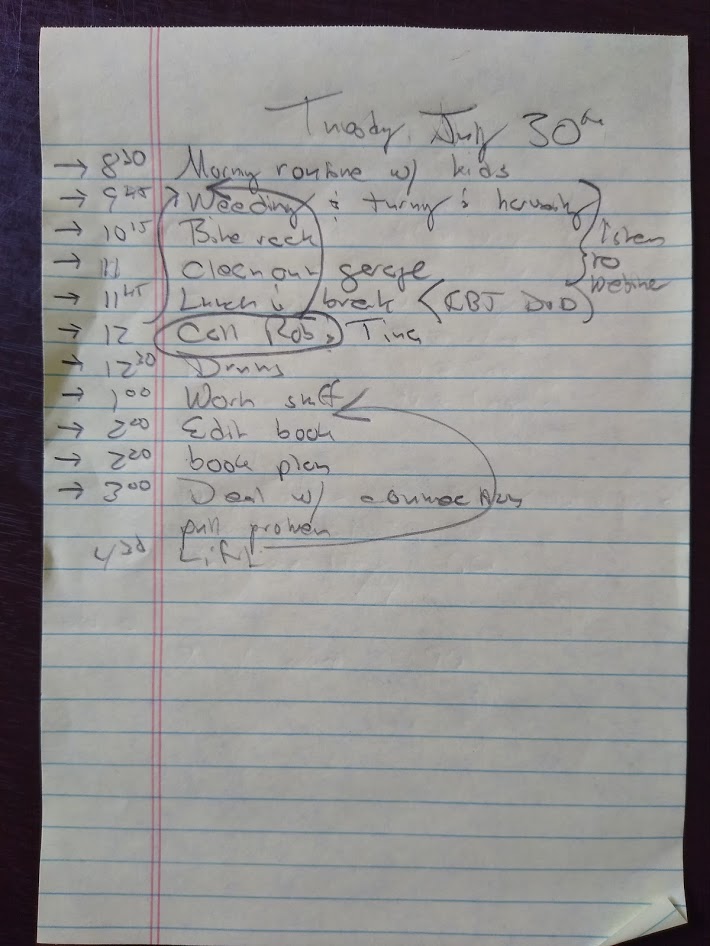 Tuesday, July 30th
→ 8:30 Morning routine w/ kids
→ 9:45 Weeding & turning & harvesting
→ 10:15 Bike rack
Listen
→ 11 Clean out garage
to
→ 11:45 Lunch & break (KBJ DVD)
Webinar
→ 12 Call Rob, Tina
→ 12:30 Drums
→ 1:00 Work stuff
→ 2:00 Edit book
→ 2:20 book plan
→ 3:00 Deal w/
pull problem
4:30 Lift